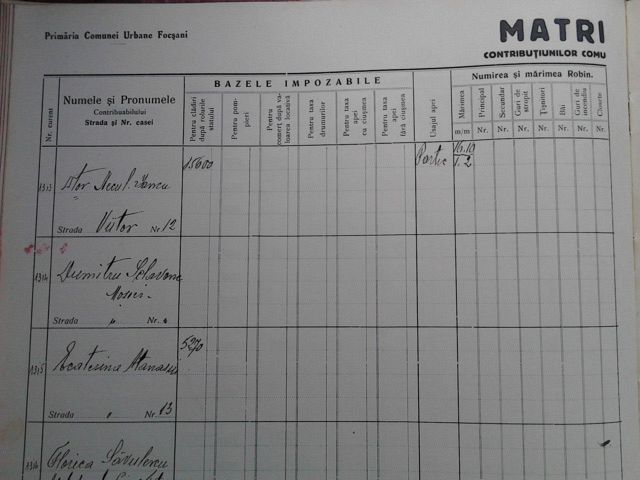 Primăria Comunei Urbane Focșani
MATRI
CONTRIBUȚIUNILOR COMU
Nr. curent
Numele și Pronumele
Contribuabilului
Strada și Nr. casei
BAZELE IMPOZABILE
Pentru clădiri
după rolurile
statului
Pentru pom-
pieri
Pentru
comerț după va-
loarea locativă
Pentru taxa
drumurilor
Pentru taxa
apei
cu cișmea
Pentru taxa
apei
fără cișmea
Uzajul apei
Numirea și mărimea Robin.
Mărimea
Principal
Secundar
Guri de
stropit
Țișnitori
Băi
Guri de
incendiu
Closete
m/m Nr. Nr. Nr. Nr. Nr. Nr. Nr.
1313 Necul. Iancu 15600 Partic 16.10
1.2
Strada Viitor Nr. 12
1314 Dumitru
Strada " Nr.
1315 Ecaterina Atanasiu 5270
Strada " Nr. 13
1316 Florica Săvulescu